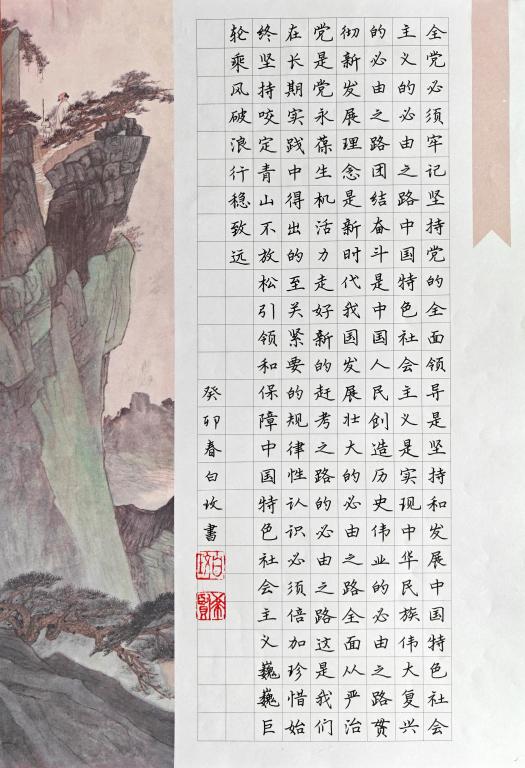 全党必须牢记坚持党的全面领导是坚持和发展中国特色社会
主义的必由之路中国特色社会主义是实现中华民族伟大复兴
的必由之路团结奋斗是中国人民创造历史伟业的必由之路贯
彻新发展理念是新时代我国发展壮大的必由之路全面从严治
党是党永葆生机活力走好新的赶考之路的必由之路这是我们
在长期实践中得出的至关紧要的规律性认识必须倍加珍惜始
终坚持咬定青山不放松引领和保障中国特色社会主义巍巍巨
轮乘风破浪行稳致远
癸卯春白玫書
白玫